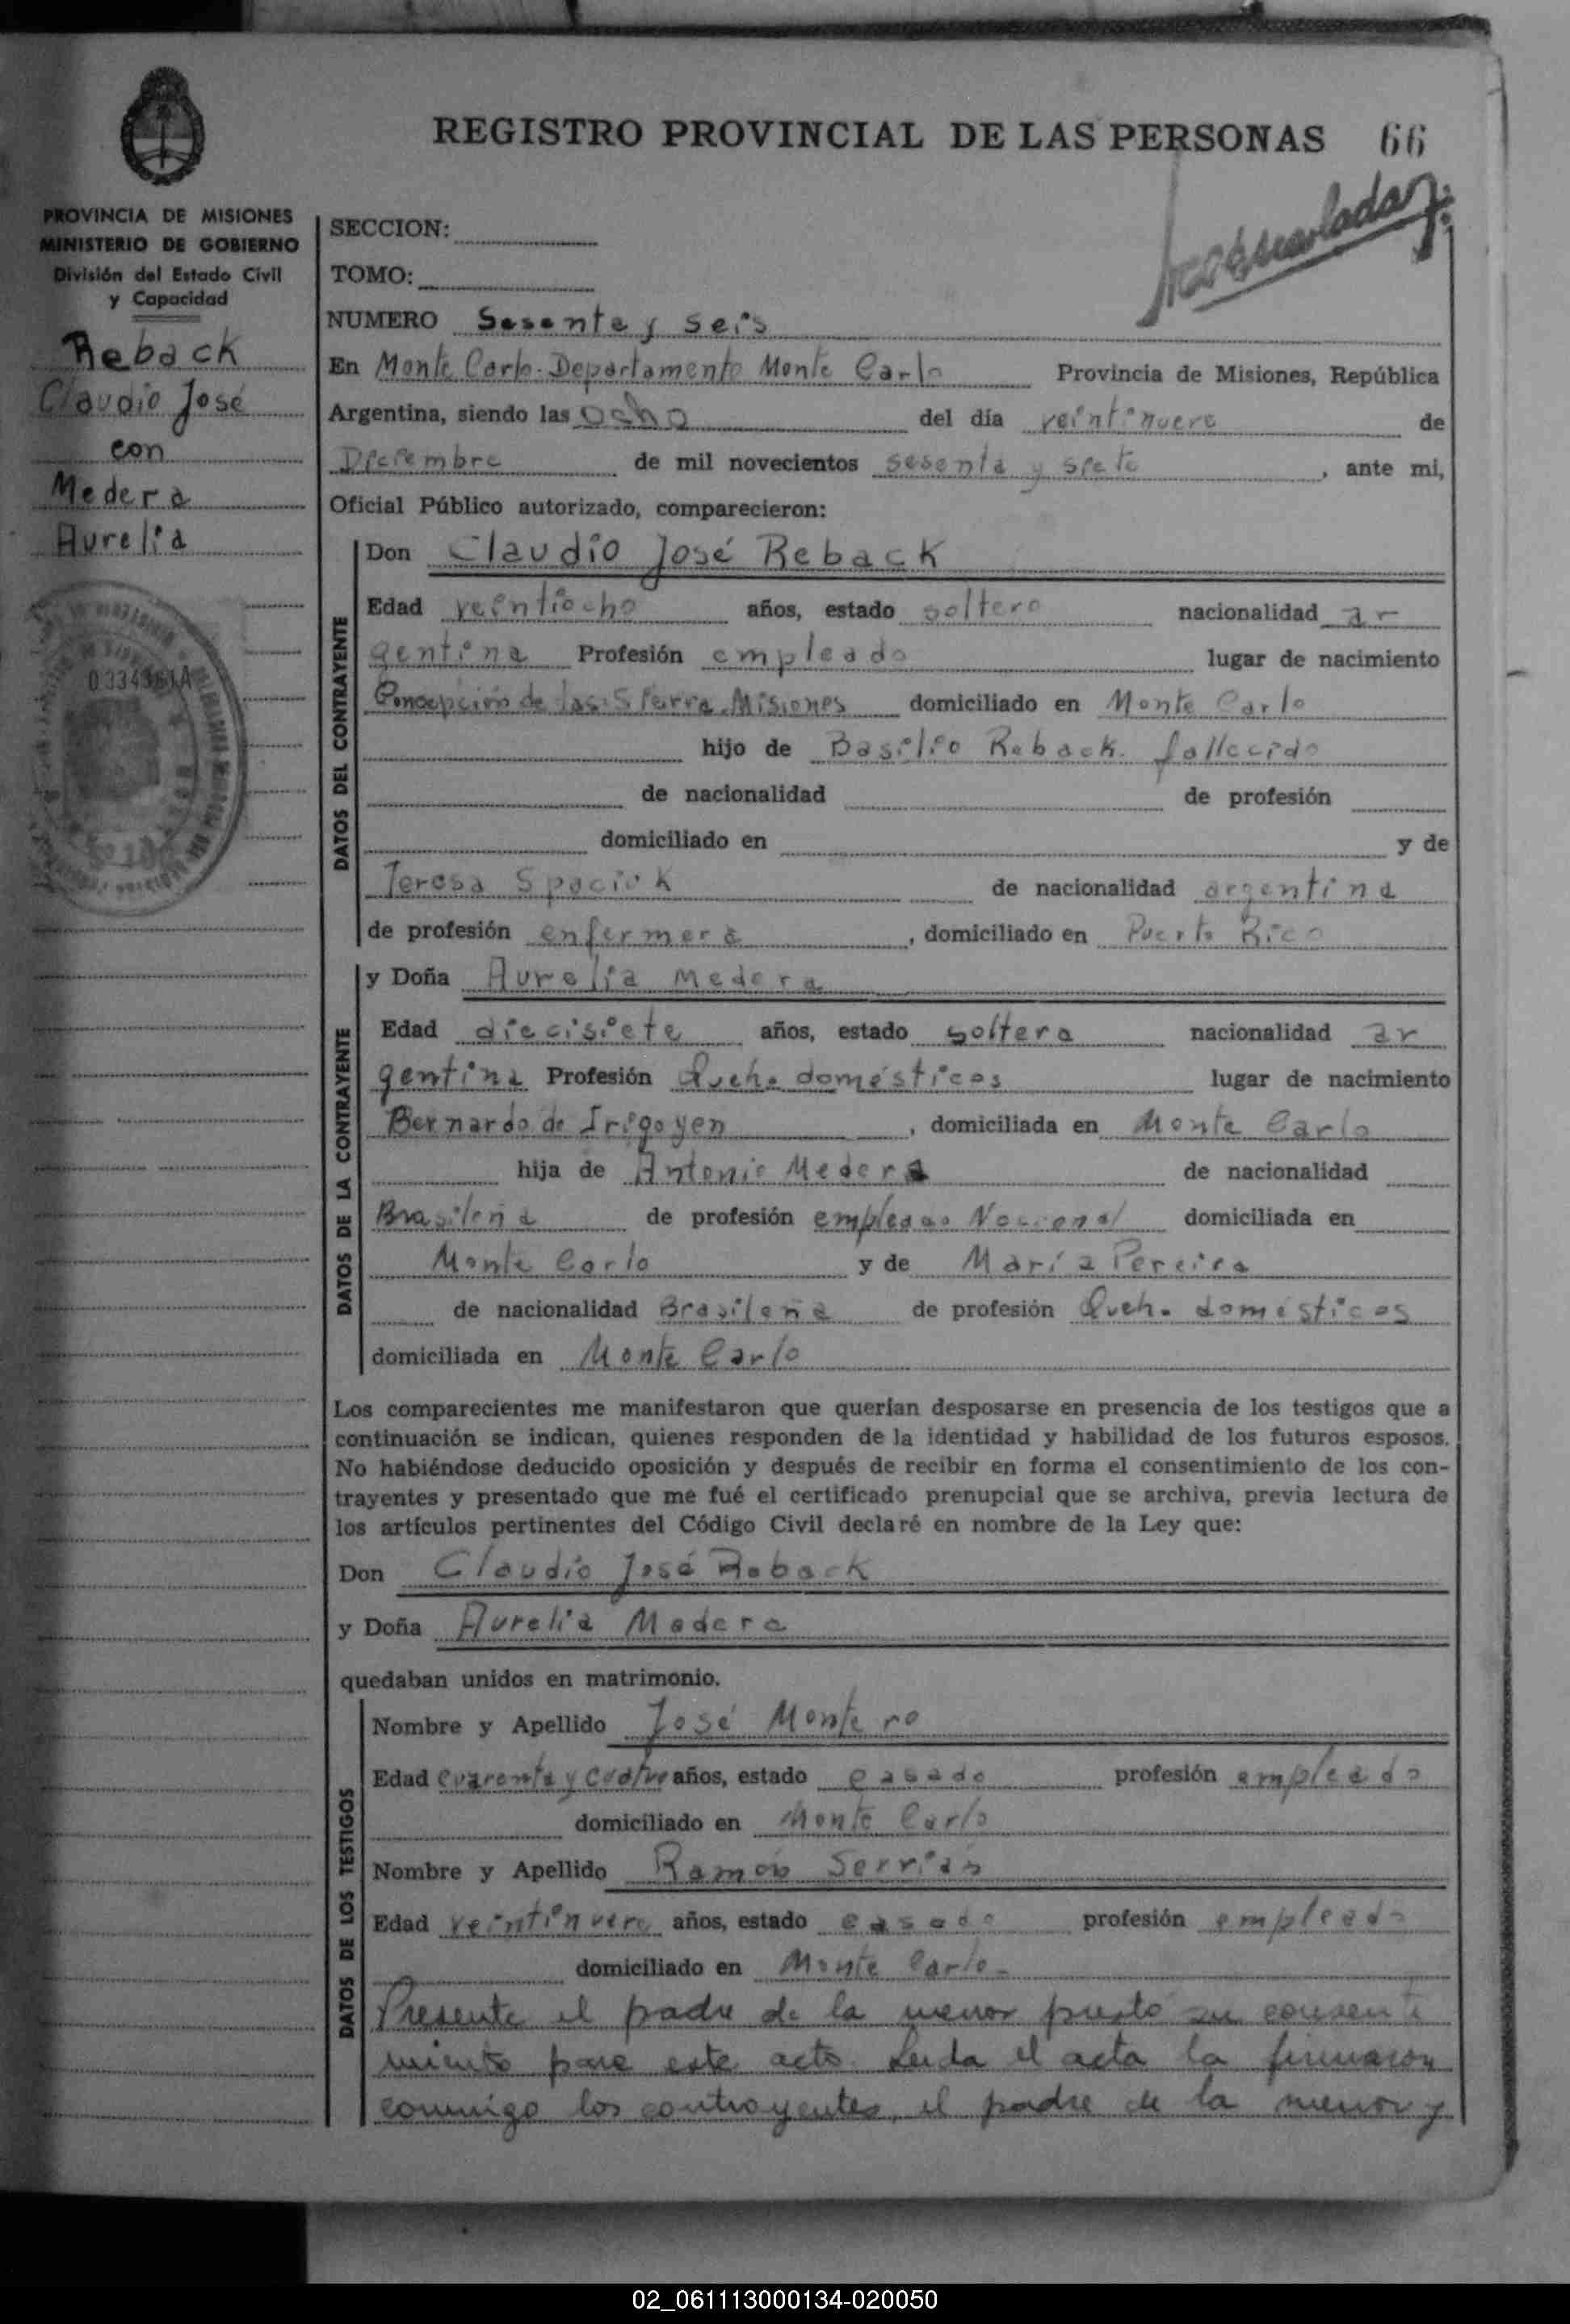 REGISTRO PROVINCIAL DE LAS PERSONAS 66
PROVINCIA DE MISIONES
MINISTERIO DE GOBIERNO
División del Estado Civil
y Capacidad
Reback
Claudio José
con
Medera
Aurelia
033436 A
SECCION:
TOMO:
NUMERO Sesenta y seis
En Monte Carlo. Departamento Monte Carlo Provincia de Misiones, República
Argentina, siendo las ocho del día veintinueve de
Diciembre de mil novecientos sesenta y siete, ante mi,
Oficial Público autorizado, comparecieron:
DATOS DEL CONTRAYENTE
Don Claudio José Reback
Edad veintiocho años, estado soltero nacionalidad ar
gentina Profesión empleado lugar de nacimiento
Concepción de las Sierra. Misiones domiciliado en Monte Carlo
hijo de Basilio Reback. fallecido
de nacionalidad de profesión
domiciliado en y de
Teresa Spaciok de nacionalidad argentina
de profesión enfermera, domiciliado en Puerto Rico
DATOS DE LA CONTRAYENTE
y Doña Aurelia Medera
Edad diecisiete años, estado soltera nacionalidad ar
gentina Profesión Queh. domésticos lugar de nacimiento
Bernardo de Irigoyen, domiciliada en Monte Carlo
hija de Antonio Medera de nacionalidad
Brasileña de profesión empleado Nacional domiciliada en
Monte Carlo y de María Pereira
de nacionalidad Brasileña de profesión Queh. domésticos
domiciliada en Monte Carlo
Los comparecientes me manifestaron que querían desposarse en presencia de los testigos que a
continuación se indican, quienes responden de la identidad y habilidad de los futuros esposos.
No habiéndose deducido oposición y después de recibir en forma el consentimiento de los con-
trayentes y presentado que me fué el certificado prenupcial que se archiva, previa lectura de
los artículos pertinentes del Código Civil declaré en nombre de la Ley que:
Don Claudio José Reback
y Doña Aurelia Medera
quedaban unidos en matrimonio.
DATOS DE LOS TESTIGOS
Nombre y Apellido José Montero
Edad cuarenta y cuatro años, estado casado profesión empleado
domiciliado en Monte Carlo
Nombre y Apellido Ramón Serrián
Edad veintinueve años, estado casado profesión empleado
domiciliado en Monte Carlo-
Presente el padre de la menor prestó su consenti
miento para este acto. Leida el acta la firmaron
conmigo los contrayentes, el padre de la menor y
02_061113000134-020050